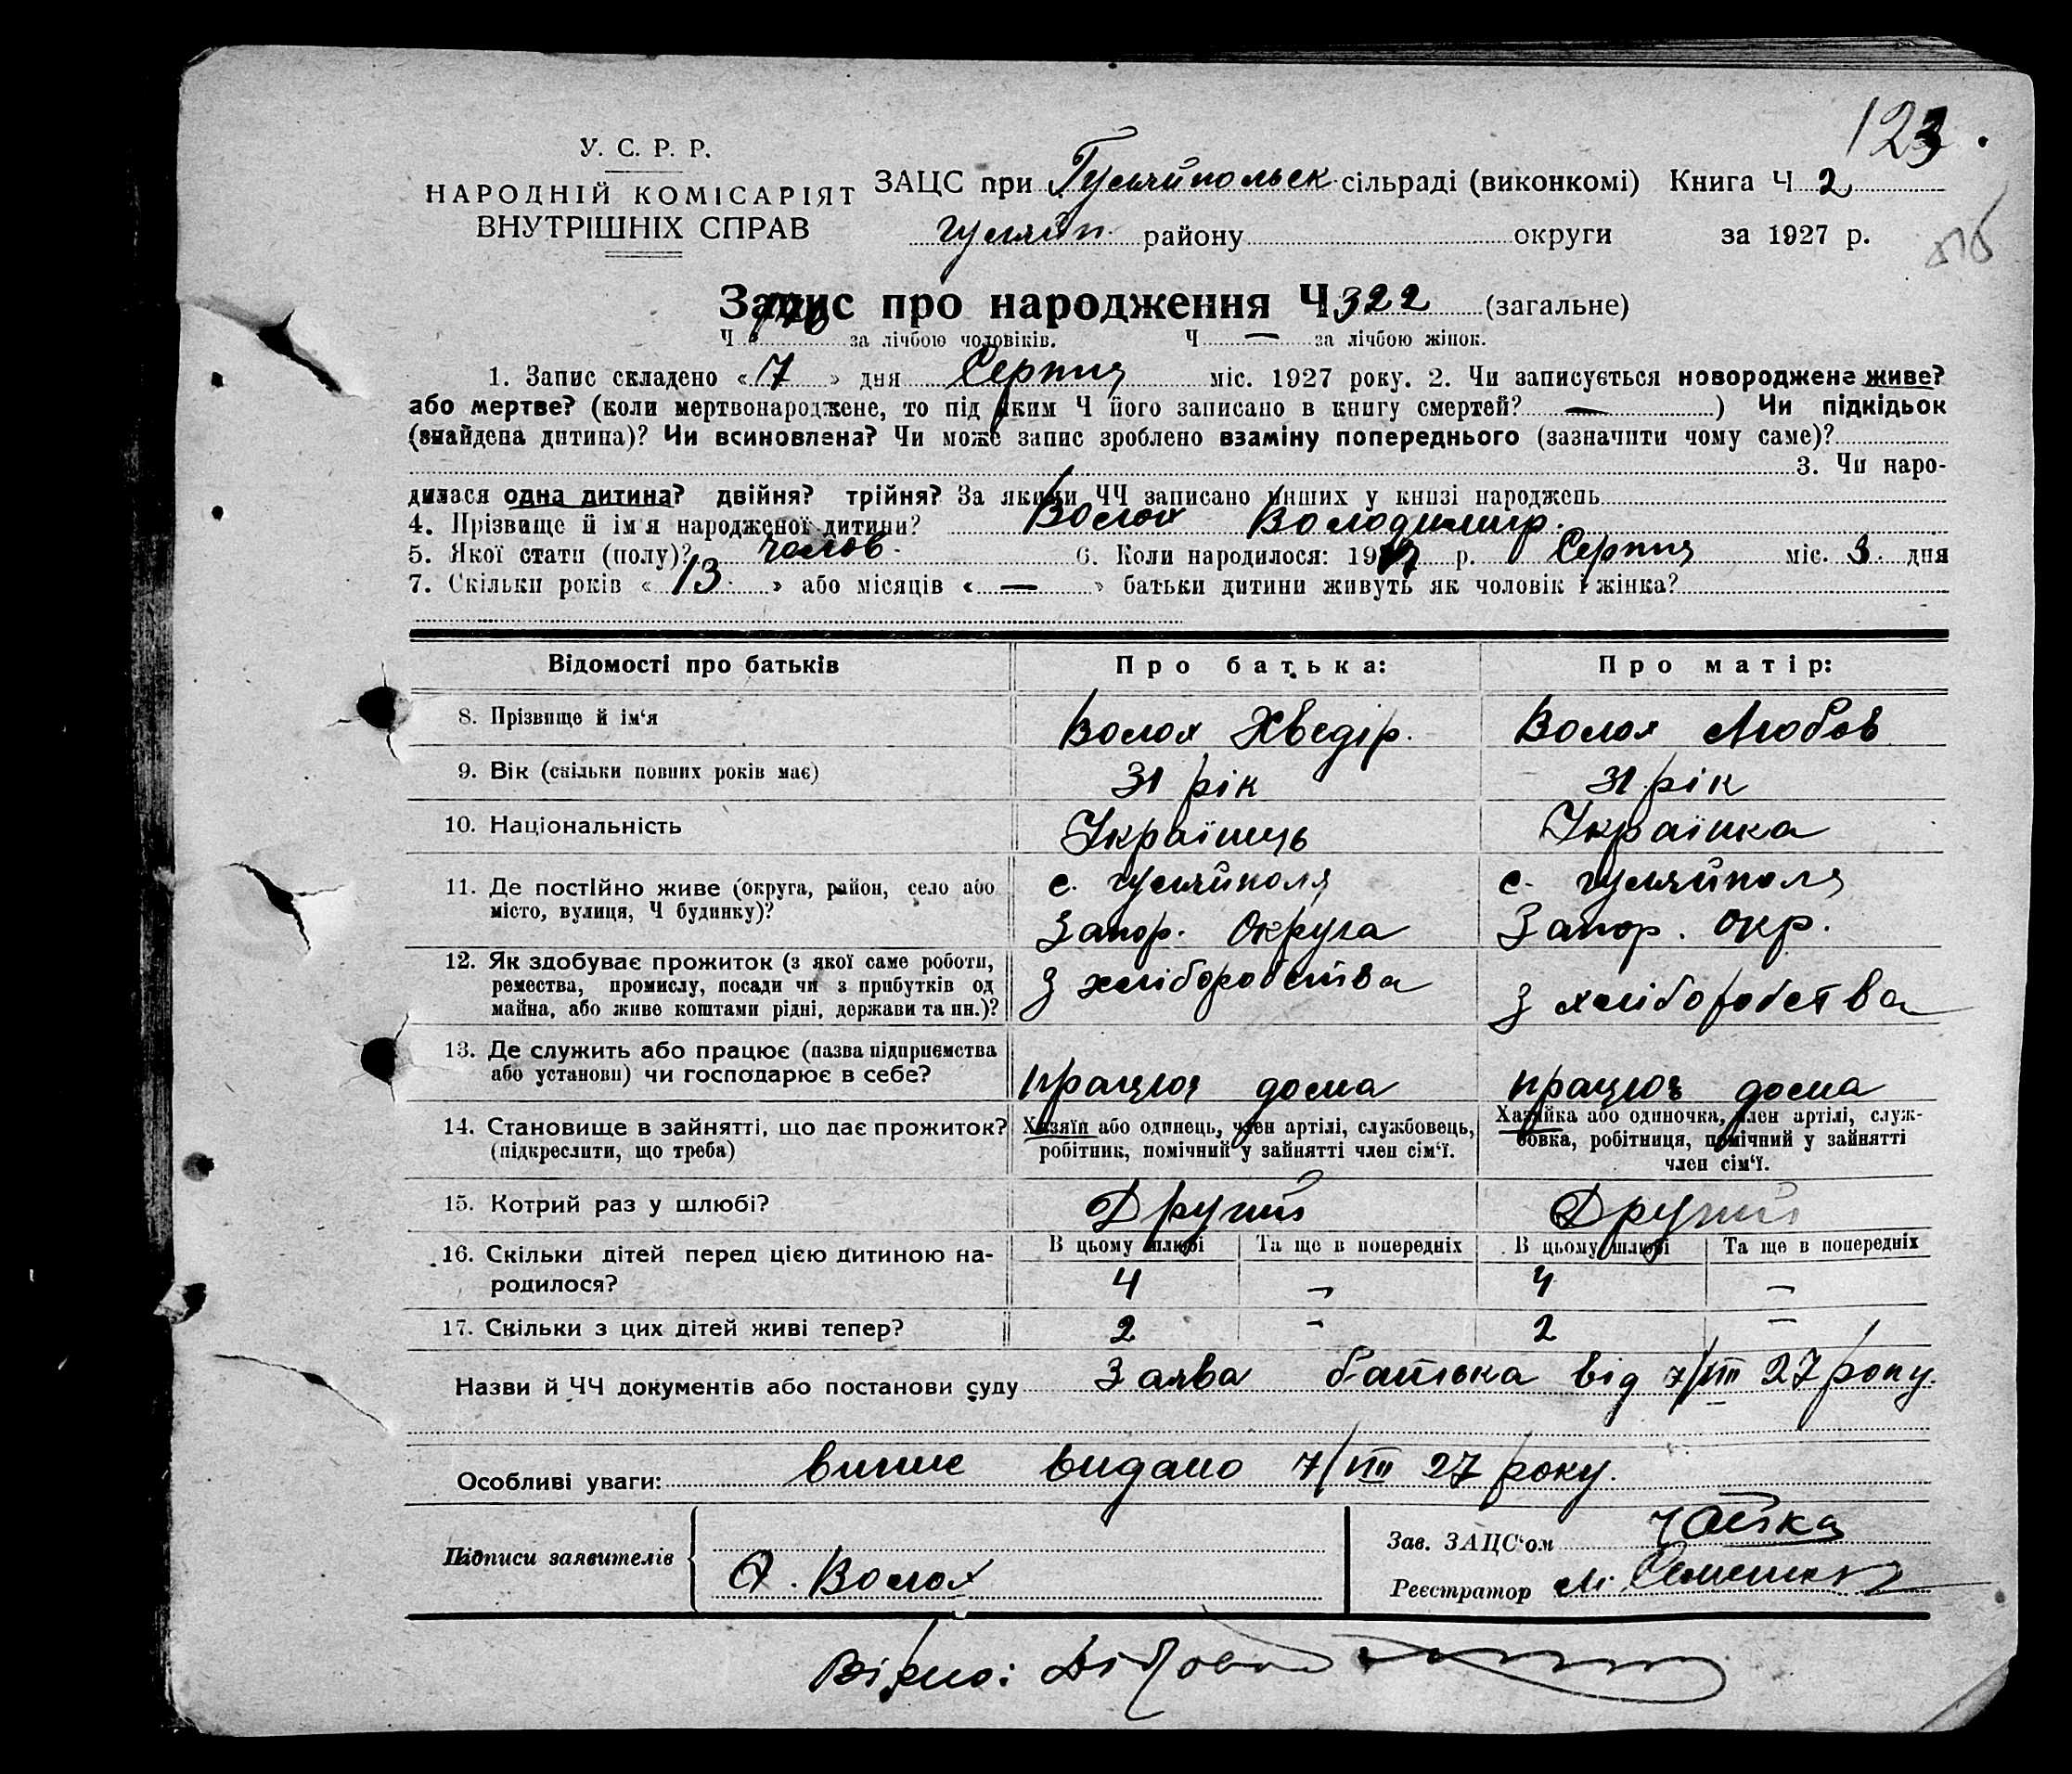 123.
У. С. Р. Р.
НАРОДНІЙ КОМІСАРІЯТ
ВНУТРІШНІХ СПРАВ
ЗАЦС при Гуляйпольск сільраді (виконкомі) Книга Ч 2
гуляйп. району округи за 1927 р.
Запис про народження Ч 322 (загальне)
Ч 176 за лічбою чоловіків. Ч — за лічбою жінок.
1. Запис складено «7» дня Серпня міс. 1927 року. 2. Чи записується новороджене живе?
або мертве? (коли мертвонароджене, то під яким Ч його записано в книгу смертей? — ) Чи підкідьок
(знайдена дитина)? Чи всиновлена? Чи може запис зроблено взаміну попереднього (зазначити чому саме)?
3. Чи наро-
дилася одна дитина? двійня? трійня? За якими ЧЧ записано инших у книзі народжень
4. Прізвище й ім'я народженої дитини? Волох Володимир.
5. Якої стати (полу)? чолов. 6. Коли народилося: 1927 р. Серпня міс. 3. дня
7. Скільки років «13» або місяців «—» батьки дитини живуть як чоловік і жінка?
Відомості про батьків Про батька: Про матір:
8. Прізвище й ім'я Волох Хведір. Волох Любов
9. Вік (скільки повних років має) 31 рік 31 рік
10. Національність Українець Українка
11. Де постійно живе (округа, район, село або с. гуляйполя с. гуляйполя
місто, вулиця, Ч будинку)? Запор. Округа Запор. окр.
12. Як здобуває прожиток (з якої саме роботи,
ремества, промислу, посади чи з прибутків од з хліборобства з хліборобства
майна, або живе коштами рідні, держави та ин.)?
13. Де служить або працює (назва підприємства
або установи) чи господарює в себе? працює дома працює дома
14. Становище в зайнятті, що дає прожиток? Хазяїн або одинець, член артілі, службовець, Хазяйка або одиночка, член артілі, служ-
(підкреслити, що треба) робітник, помічний у зайнятті член сім'ї. бовка, робітниця, помічний у зайнятті
член сім'ї.
15. Котрий раз у шлюбі? Другий Другий
16. Скільки дітей перед цією дитиною на- В цьому шлюбі Та ще в попередніх В цьому шлюбі Та ще в попередніх
родилося? 4 – 4 –
17. Скільки з цих дітей живі тепер? 2 – 2 –
Назви й ЧЧ документів або постанови суду Заява батька від 7/VIII 27 року.
Особливі уваги: випис видано 7/VIII 27 року.
Підписи заявителів
Зав. ЗАЦС'ом Чайка
Волох
Реєстратор
Вірно: